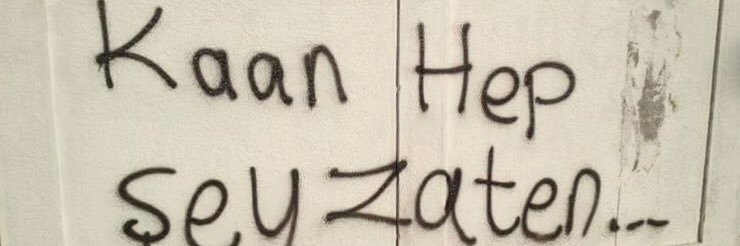 Kaan Hep
şey zaten...